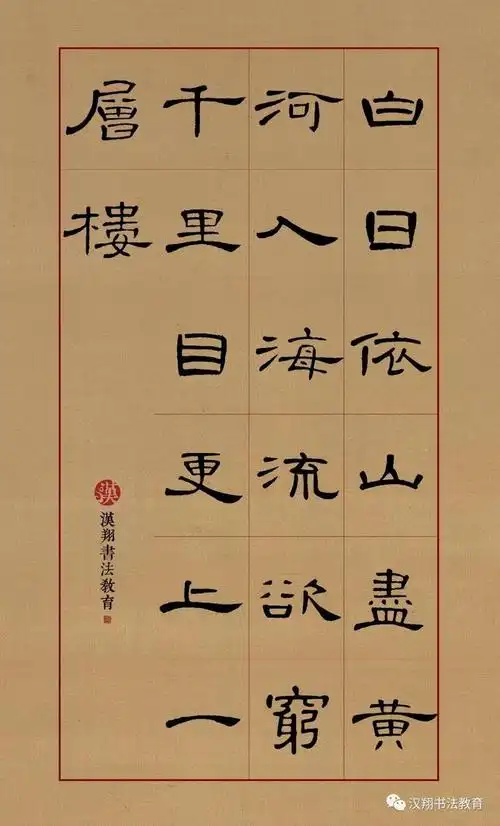 白日依山盡黄
河入海流欲窮
千里目更上一
層樓
漢
漢翔書法教育
汉翔书法教育